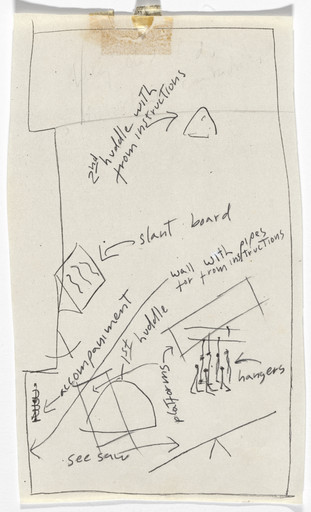 2nd
huddle with
from instructions
slant board
wall with pipes
for from instructions
accompaniment
1st huddle
platforms
hangers
see saw